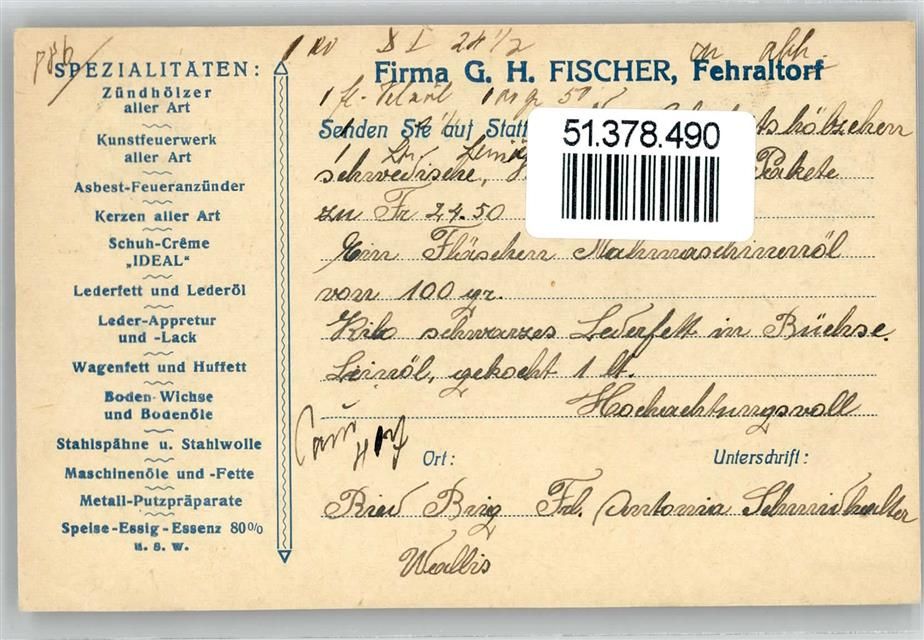 SPEZIALITÄTEN:
Zündhölzer
aller Art
Kunstfeuerwerk
aller Art
Asbest-Feueranzünder
Kerzen aller Art
Schuh-Crême
„IDEAL“
Lederfett und Lederöl
Leder-Appretur
und -Lack
Wagenfett und Huffett
Boden-Wichse
und Bodenöle
Stahlspähne u. Stahlwolle
Maschinenöle und -Fette
Metall-Putzpräparate
Speise-Essig-Essenz 80%
u. s. w.
Firma G. H. FISCHER, Fehraltorf
Senden Sie auf
51.378.490
schwedische, Pakete
zu Fr 24.50
Ein Fläschen Mahmaschinenöl
von 100 gr.
Kilo schwarzes Lederfett in Büchse.
Leinöl, gekocht 1 lt.
Hochachtungsvoll
Ort: Unterschrift:
Ried Brig Frl. Antonia Schmidhalter
Wallis